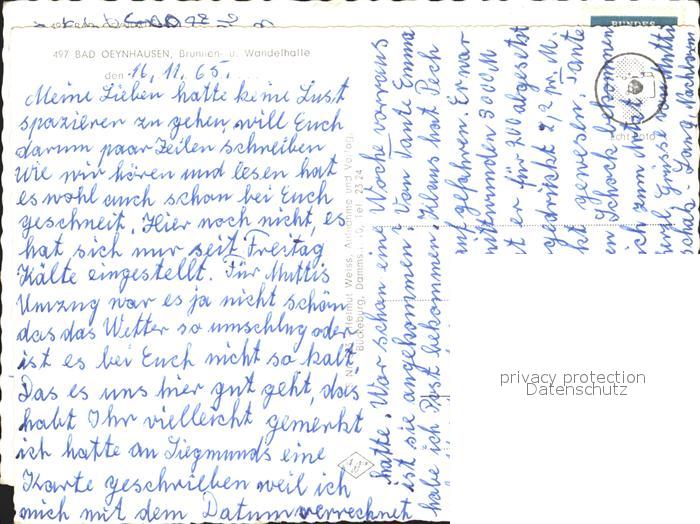 BUNDES
497 BAD OEYNHAUSEN, Brunnen- u. Wandelhalle
den 16. 11. 65.
Meine Lieben hatte keine Lust
spazieren zu gehen, will Euch
darum paar Zeilen schreiben
Wie wir hören und lesen hat
es wohl auch schon bei Euch
geschneit. Hier noch nicht, es
hat sich nur seit Freitag
Kälte eingestellt. Für Muttis
Umzug war es ja nicht schön
das das Wetter so umschlug oder
ist es bei Euch nicht so kalt
Das es uns hier gut geht, das
habt Ihr vielleicht gemerkt
ich hatte an Siegmunds eine
Karte geschrieben weil ich
mich mit dem Datum verrechnet
hatte. War schon eine Woche voraus
ist sie angekommen? Von Tante Emma
habe ich Post bekommen. Klaus hat Pech
aufgefahren. Er war
3000 M
t er für 200 abgesetzt
gedrückt 2,2 pr. M.
kt gewesen. Tante
en Schock bekommen
ich zum Arzt
Grüsse von Mutti
Helmut Weiss, Aufnahme und Verlag,
Bückeburg, Tel. 23 24
privacy protection
Datenschutz